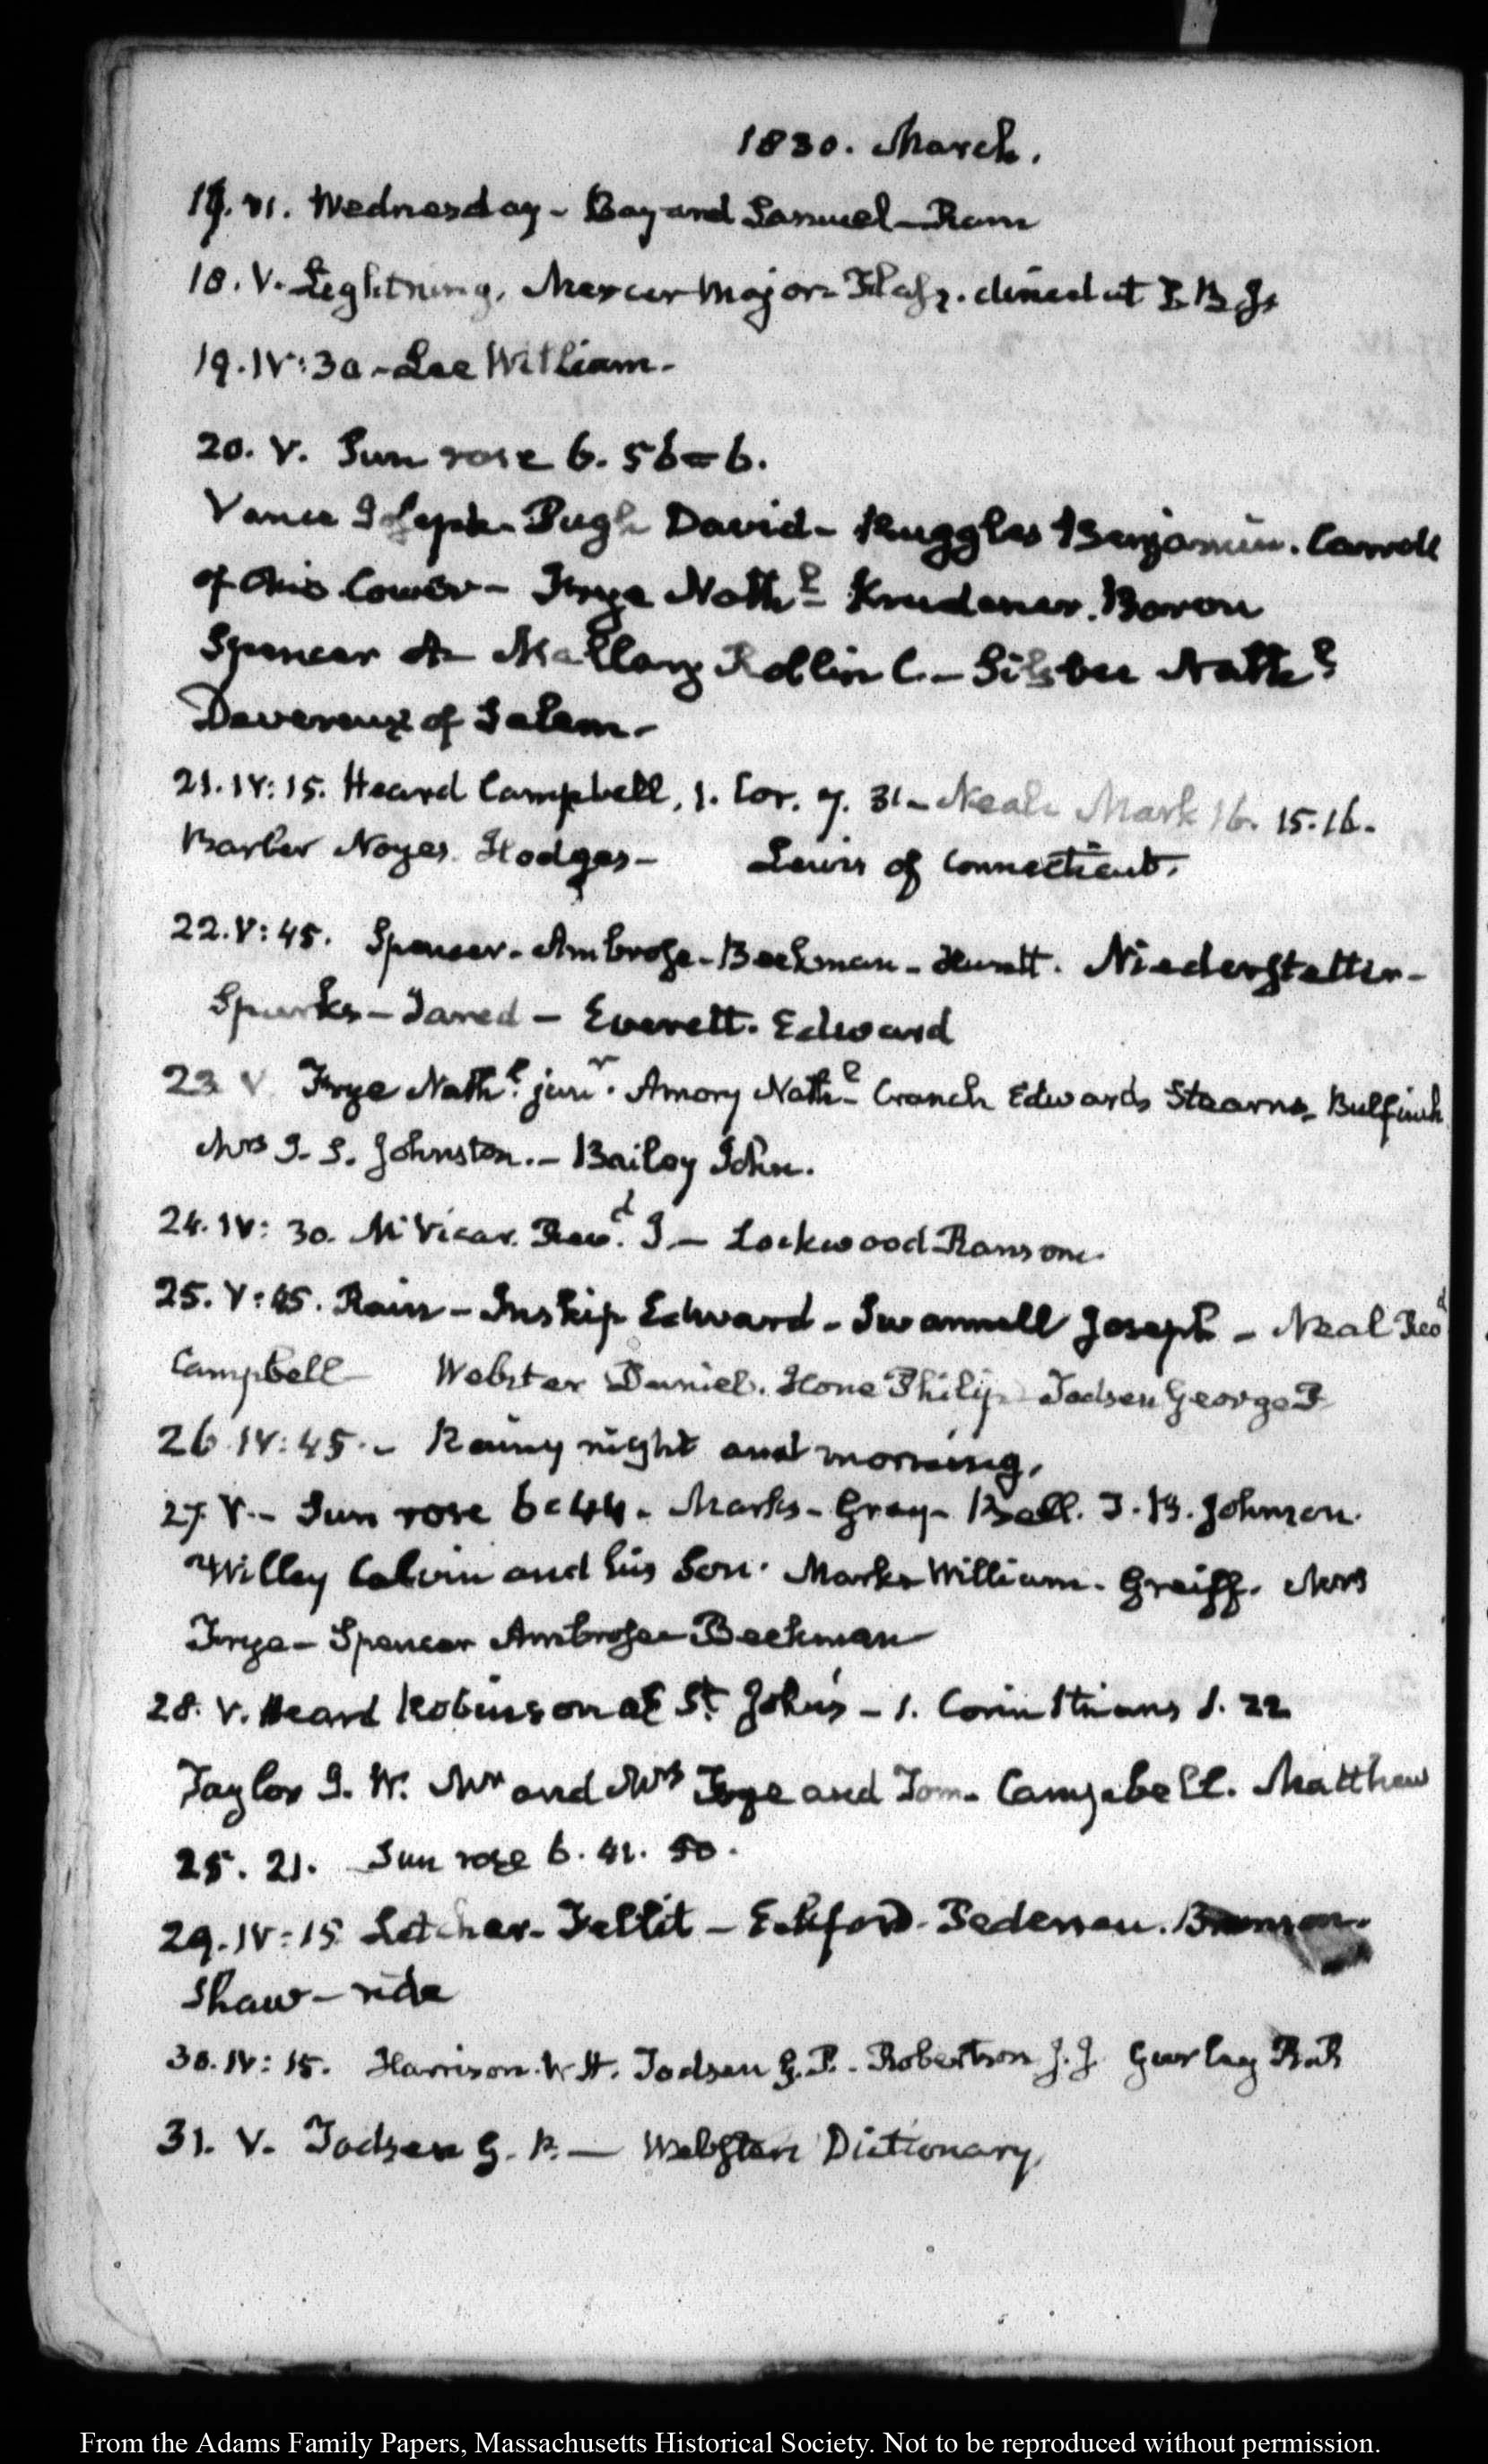 1830. March.
17. VI. Wednesday - Bayard Samuel - Rain
18. V. Lightning, Mercer Major - dined at T. B. J's
19. IV: 30 - Lee William -
20. V. Sun rose 6. 56 = 6.
Vance Joseph - Pugh David - Ruggles Benjamin. Carroll
of Ohio - Frye Nathl. Krudener. Baron
Spencer A - Mallary Rollin C. - Silsbee Nathl
Devereux of Salem -
21. IV: 15. Heard Campbell, 1. Cor. 7. 31 - Neale Mark 16. 15.16.
Barber Noyes. Hodges - Lewis of Connecticut.
22. V: 45. Spencer - Ambrose - Beekman - Huntt. Niederstetter -
Sparks - Jared - Everett. Edward
23 V. Frye Nathl. junr. Amory Nathl. Cranch Edwards Stearns - Bulfinch
Mrs J. S. Johnston. - Bailey John.
24. IV: 30. McVicar. Revd. J - Lockwood Ransom -
25. V: 45. Rain - Inskip Edward - Swannell Joseph - Neal Revd
Campbell - Webster Daniel. Hone Philip Todsen George P
26. IV: 45 - Rainy night and morning,
27. V. - Sun rose 6 = 44. Marks - Gray - Bell. J. B. Johnson.
Willey Calvin and his Son. Marks William. Greiff. Mrs
Frye - Spencer Ambrose - Beekman
28. V. Heard Robinson at St. John's - 1. Corinthians 1. 22
Taylor J. W. Mr and Mrs Frye and Tom. Campbell. Matthew
25. 21. Sun rose 6. 41. 50.
29. IV: 15 Letcher. Tellit - Eckford. Pedersen. Bronson.
Shaw - ride
30. IV: 15. Harrison. W. H. Todsen G. P. - Robertson J. J. Gurley R. R
31. V. Todsen G. P. - Websters Dictionary,
From the Adams Family Papers, Massachusetts Historical Society. Not to be reproduced without permission.